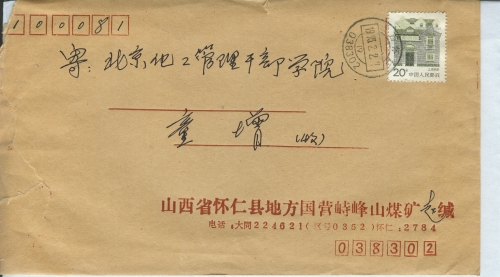 100081
寄:北京化工管理干部学院
童增(收)
20分 中国人民邮政
山西省怀仁县地方国营峙峰山煤矿 赵缄
电话:大同224621(区号0352)怀仁:2784
038302